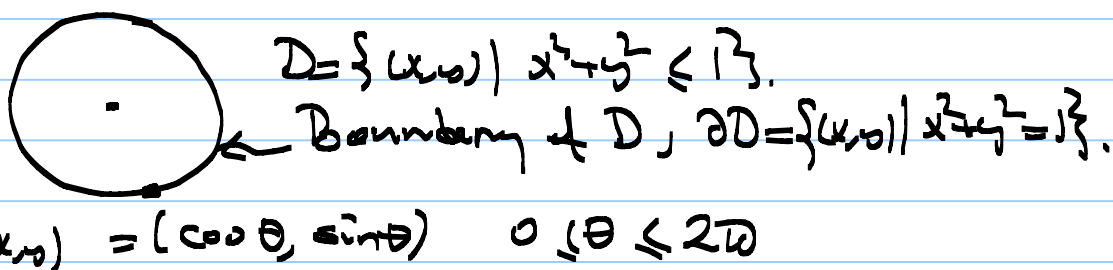 D = {(x,y) | x²+y² ≤ 1}.
← Boundary of D, ∂D = {(x,y) | x²+y² = 1}.
(x,y) = (cos θ, sin θ) 0 ≤ θ ≤ 2π